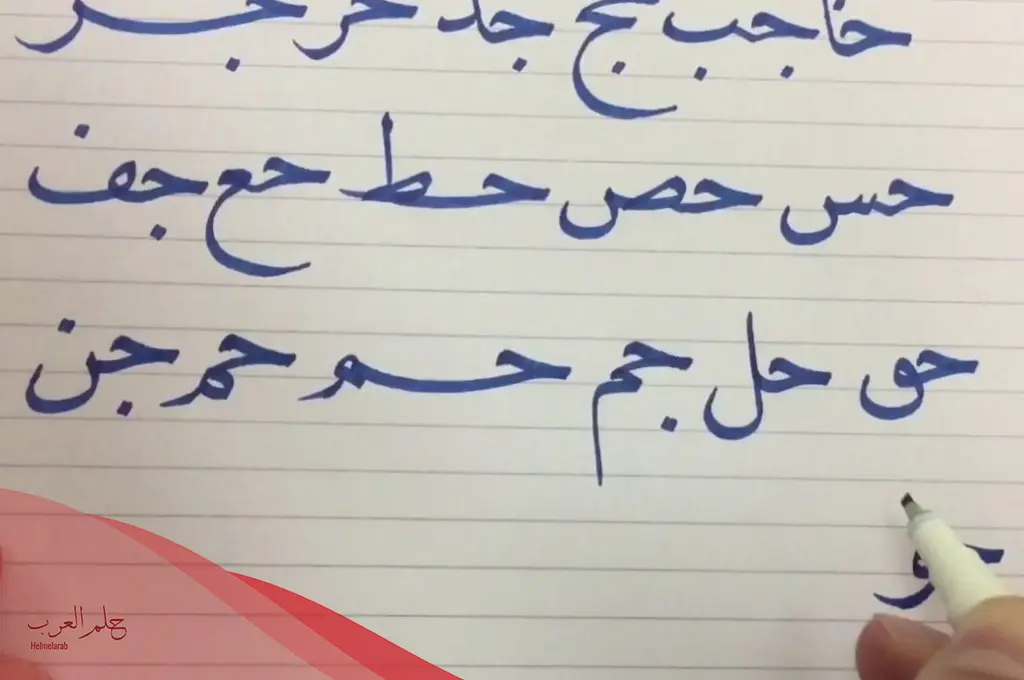 حا جب حج جد حر جر
حس حص حط حع جف
حق حل جم حم حم جن
حو
حلم العرب
Helmelarab